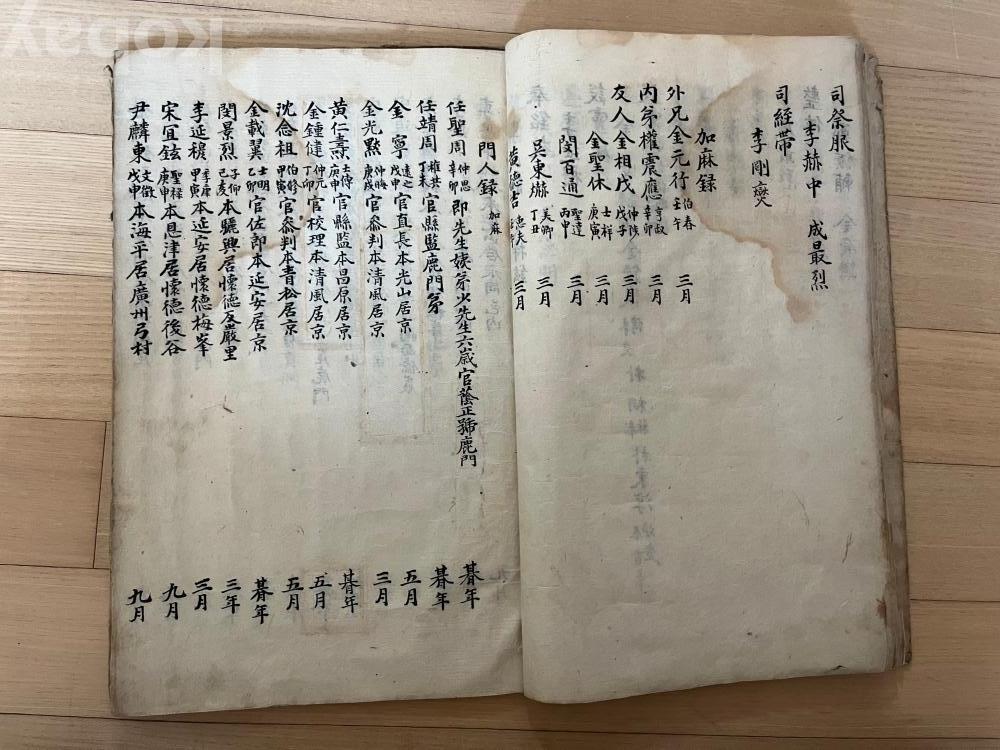 司祭服
李赫中 成最烈
司絰帶
李剛爕
加麻錄
外兄金元行 伯春 壬午 三月
内弟權震應 亨叔 辛卯 三月
友人金相戊 仲陟 戊子 三月
金聖休 士祥 庚寅 三月
閔百通 聖達 丙申 三月
吳東爀 美卿 丁丑 三月
黄德吉 三月
門人録 加麻
任聖周 仲思 辛卯 即先生姨弟少先生六歲官蔭正號鹿門 朞年
任靖周 穉共 丁未 官縣監鹿門弟 朞年
金寗 遠之 戊申 官直長本光山居京 五月
金光黙 仲晦 庚戌 官叅判本清風居京 三月
黄仁燾 士博 庚申 官縣監本昌原居京 朞年
金鍾健 仲元 丁卯 官校理本清風居京 五月
沈念祖 伯修 甲寅 官叅判本青松居京 五月
金載翼 士明 乙卯 官佐郎本延安居京 朞年
閔景烈 子仰 己亥 本驪興居懷德友嚴里 三年
李延稷 季康 甲寅 本延安居懷德梅峯 三月
宋宜鉉 聖祿 庚申 本恩津居懷德後谷 九月
尹麟東 文徵 戊申 本海平居廣州弓村 九月
Kobay